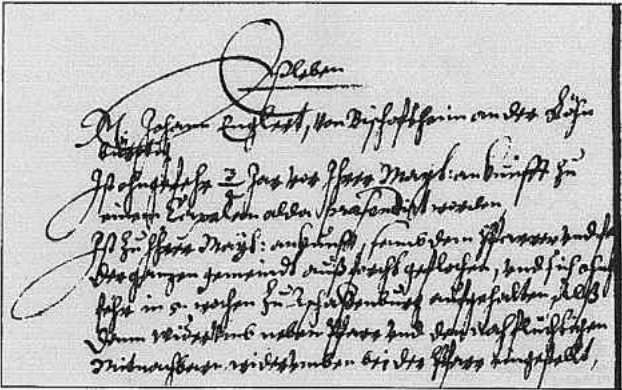 Eßleben
M. Johann Englert, von Bischoffheim an der Röhn
bürttig
Ist ohngefehr ¾ Jar vor Ihrer Mayt: ankunfft zu
einem Capelan alda præsentirt worden
Ist zu Ihrer Mayt: ankunfft, sambt dem Pfarrer und
der ganzen gemeindt auß forcht geflochen, und sich ohn
fehr in 5. wochen zu Aschaffenburg auffgehalten, Alß
dann widerumb neben Pfarr und den nachflüchtigen
Mitnachbarn widerumben bei der Pfarr eingestellt,